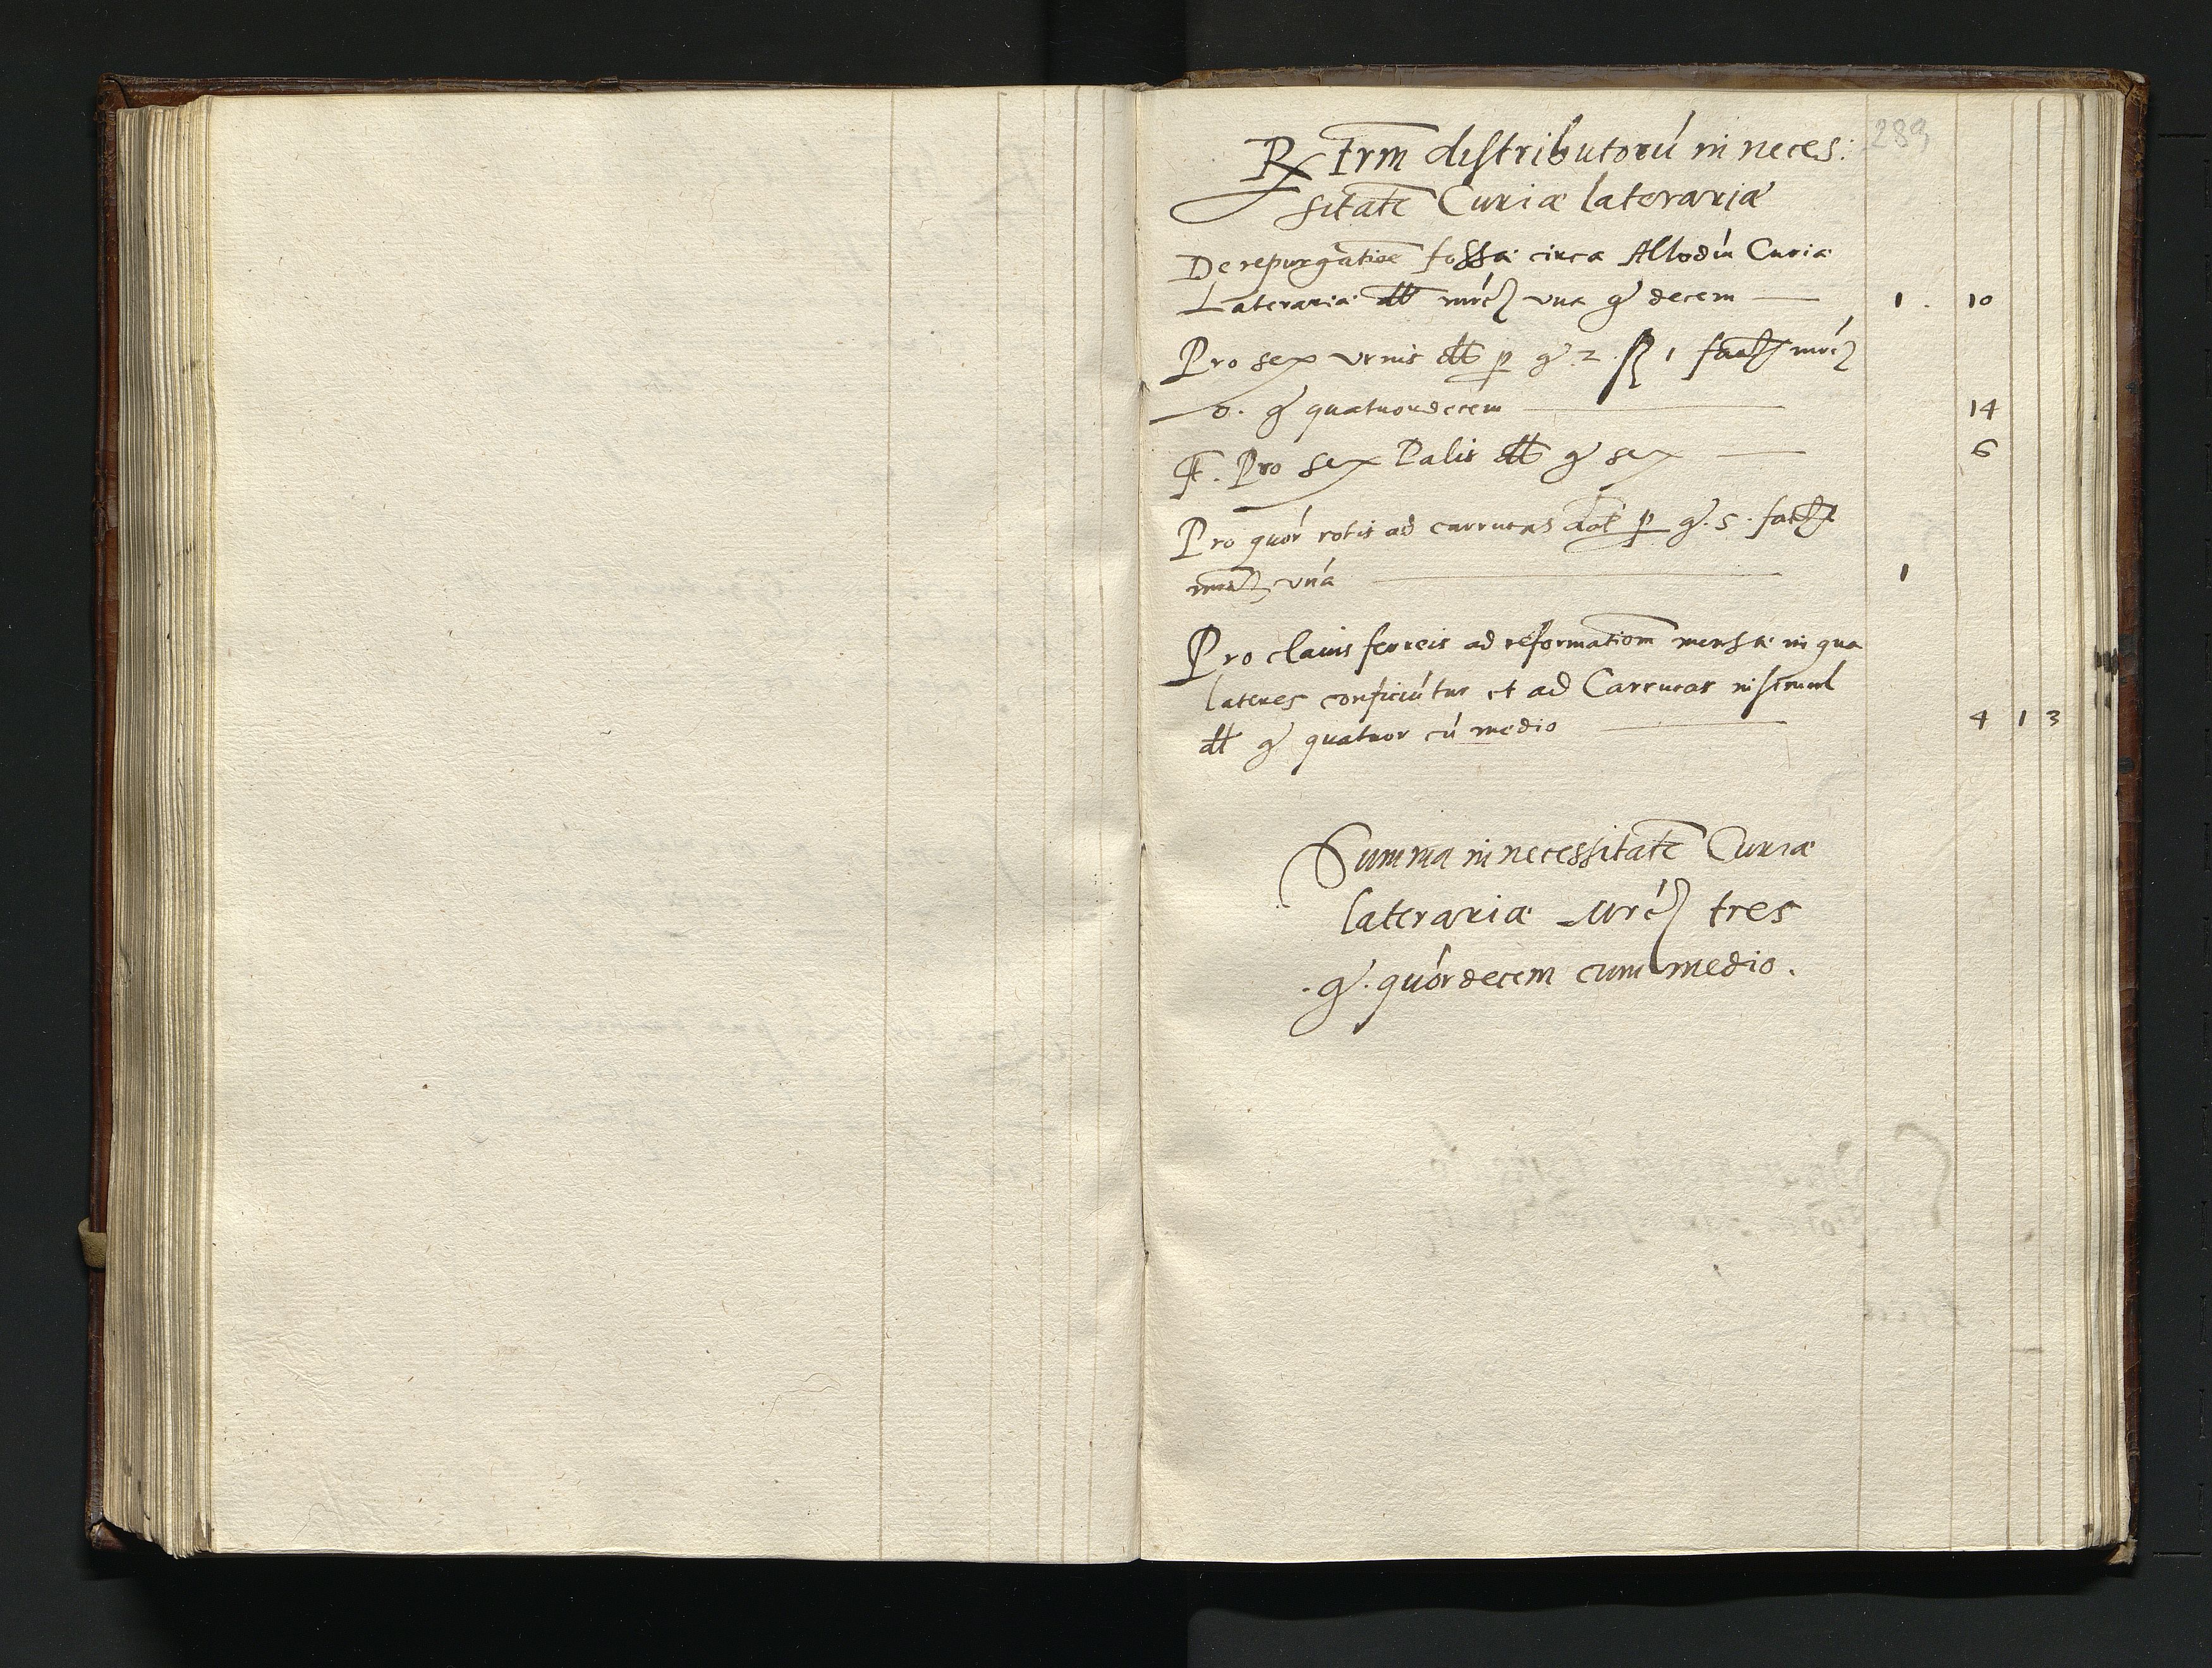 289
Rx frm distributorú in neces:
sitatē Curiæ laterariæ
De repurgatioē fossæ circa Allodiú Curiæ
Laterariæ dtt mrć vna gr decem — 1 . 10
Pro sex vrnis dtt p gr 2. ß 1 facit mrć
— 0. gr quatuordecem — 14
Pro sex Palis dtt gr sex — 6
Pro quór rotis ad carrucas dat p gr. 5. facit
mar vná — 1
Pro clauis ferreis ad reformatiom mensæ in qua
lateres conficiútur et ad Carrucas insimul
dtt gr quatuor cú medio — 4 1 3
Summa in necessitatē Curiæ
laterariæ Mrć tres
. gr . quórdecem cum medio .